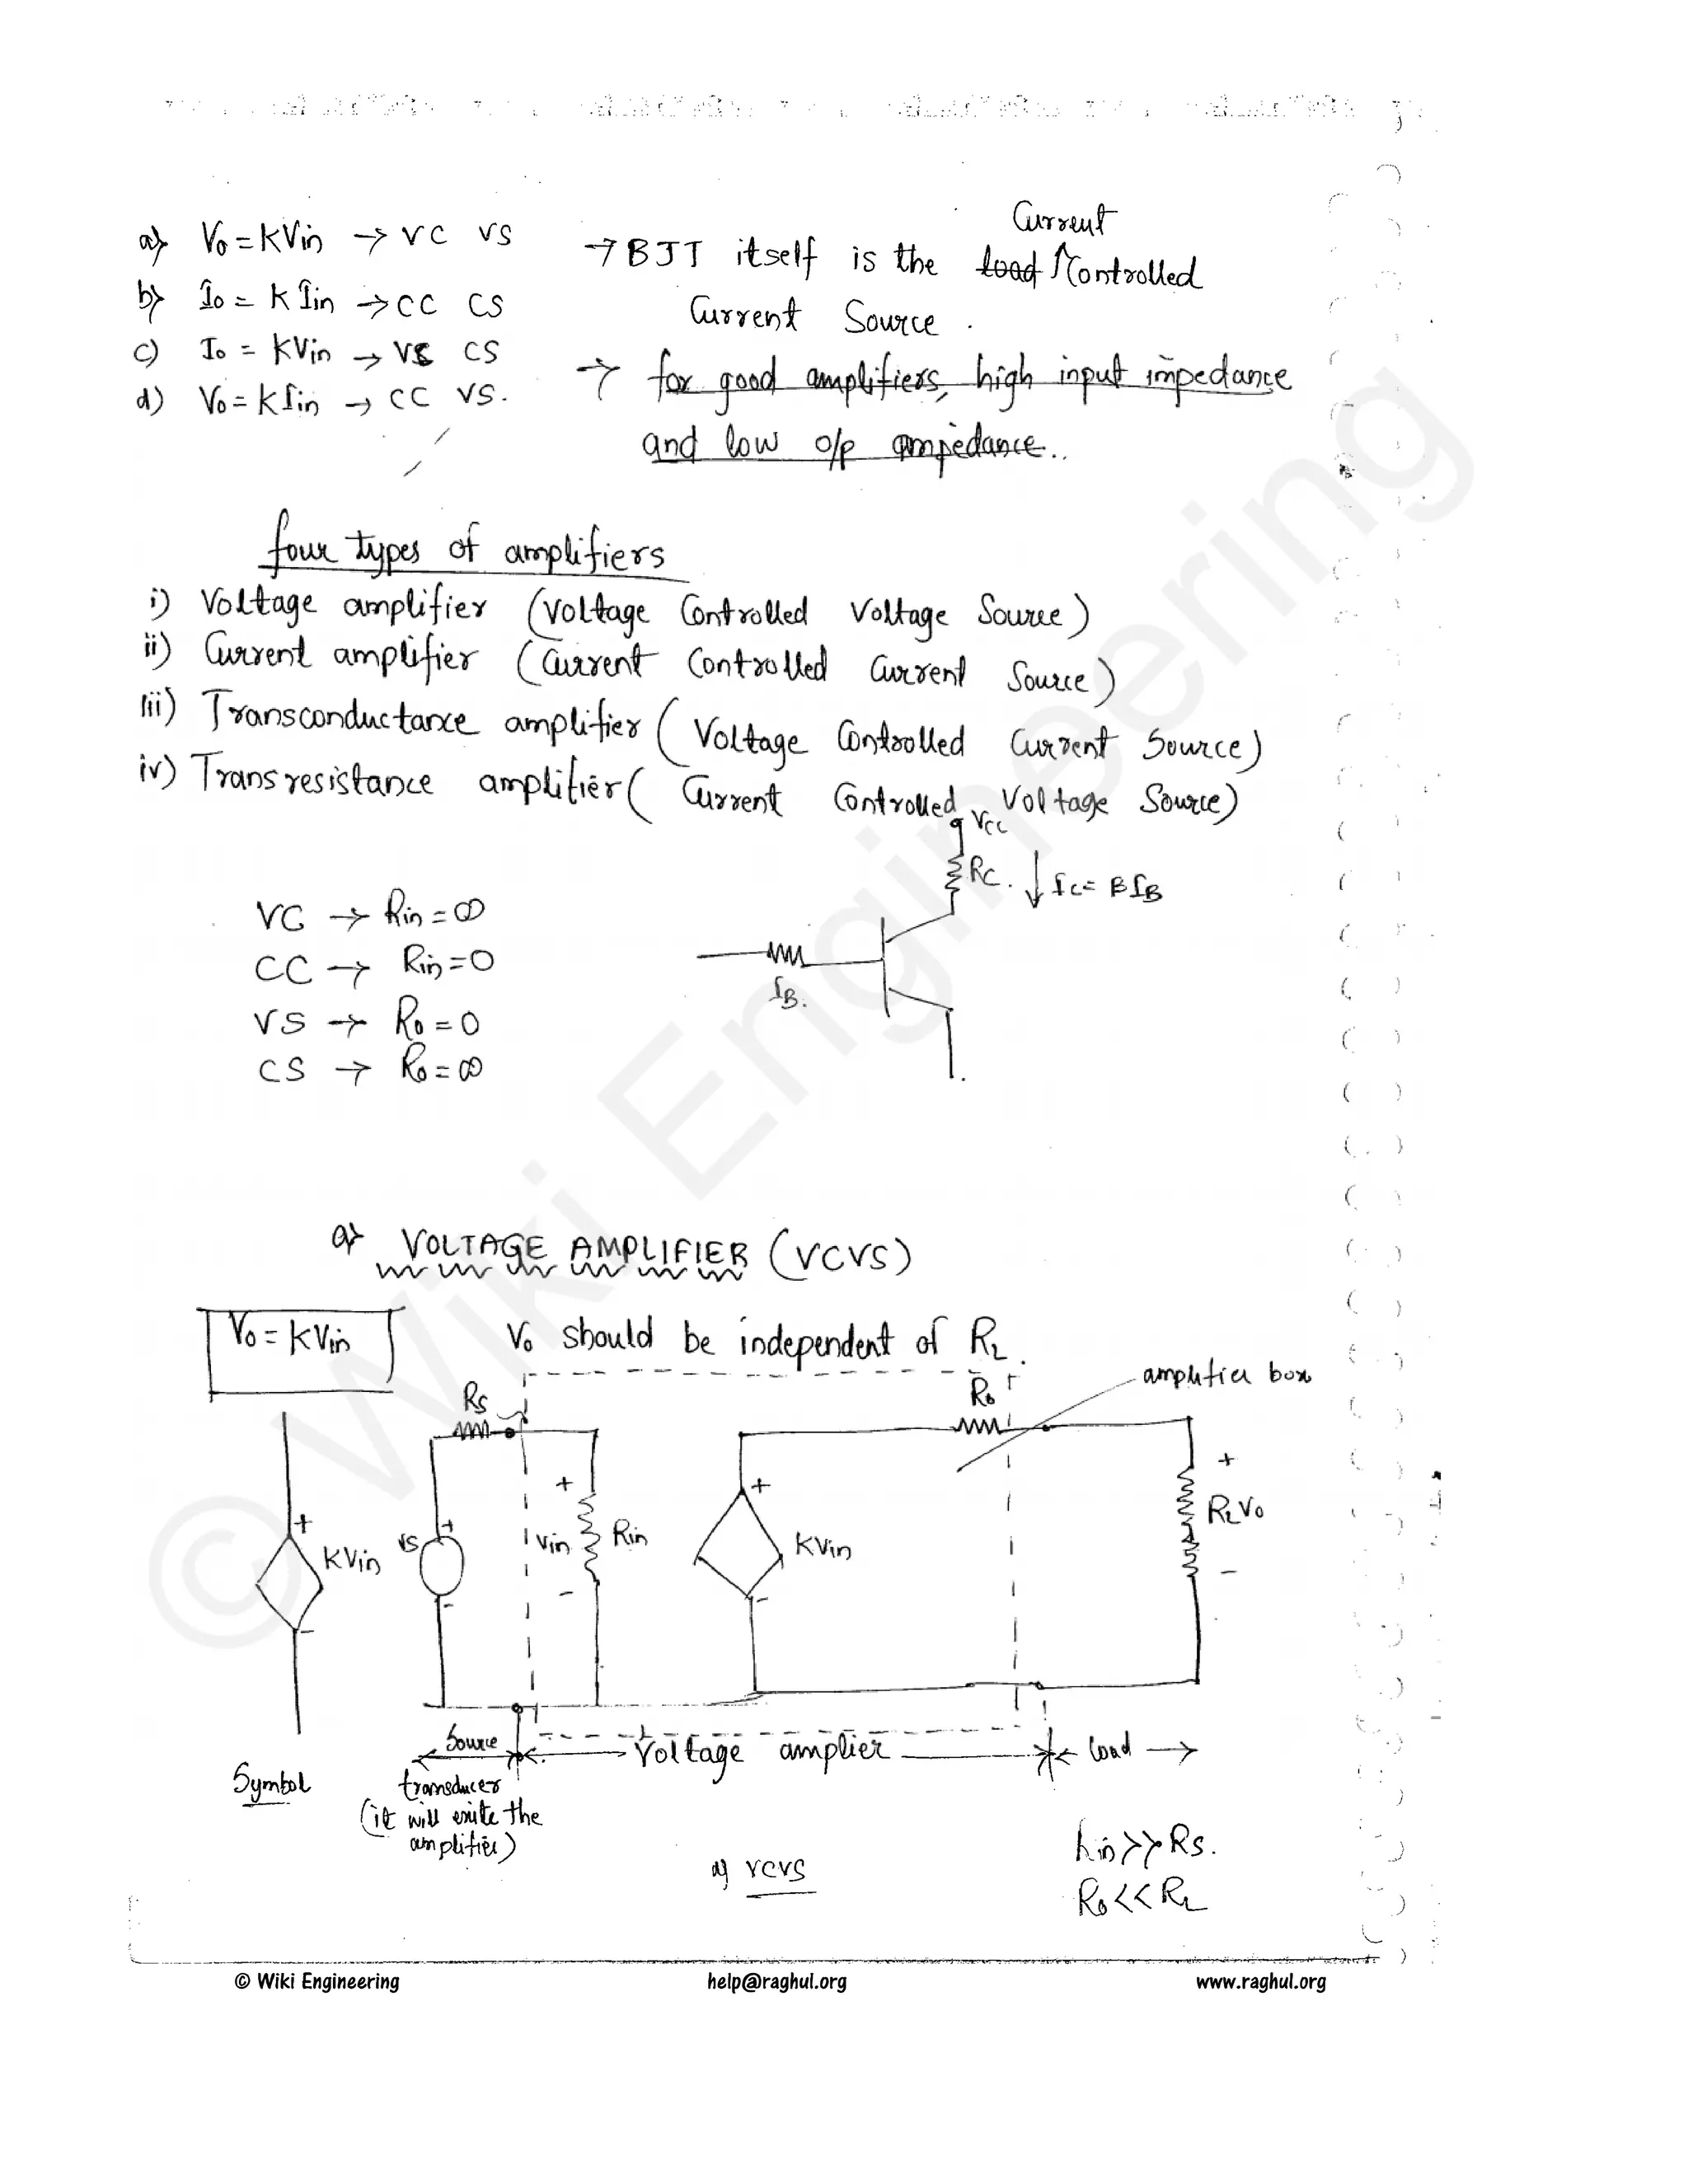 a) Vo = KVin → VC VS
b) Io = K Iin → CC CS
c) Io = KVin → VC CS
d) Vo = KIin → CC VS.
Current
→ BJT itself is the load Controlled
Current Source .
→ for good amplifiers, high input impedance
and low o/p ampedance..
four types of amplifiers
i) Voltage amplifier (Voltage Controlled Voltage Source)
ii) Current amplifier (Current Controlled Current Source)
iii) Transconductance amplifier ( Voltage Controlled Current Source)
iv) Transresistance amplifier ( Current Controlled Voltage Source)
VCC
RC. ↓ IC = βIB
IB.
VC → Rin = ∞
CC → Rin = 0
VS → Ro = 0
CS → Ro = ∞
a) VOLTAGE AMPLIFIER (VCVS)
Vo = KVin
Vo should be independent of RL.
amplifier box
Rs
Ro
+ KVin -
VS + -
+ Vin - Rin
+ KVin -
+ RL Vo -
Symbol
Source
Voltage amplier
load →
transducer
(it will exite the
amplifier)
a) VCVS
Rin >> Rs.
Ro << RL
© Wiki Engineering
© Wiki Engineering help@raghul.org www.raghul.org